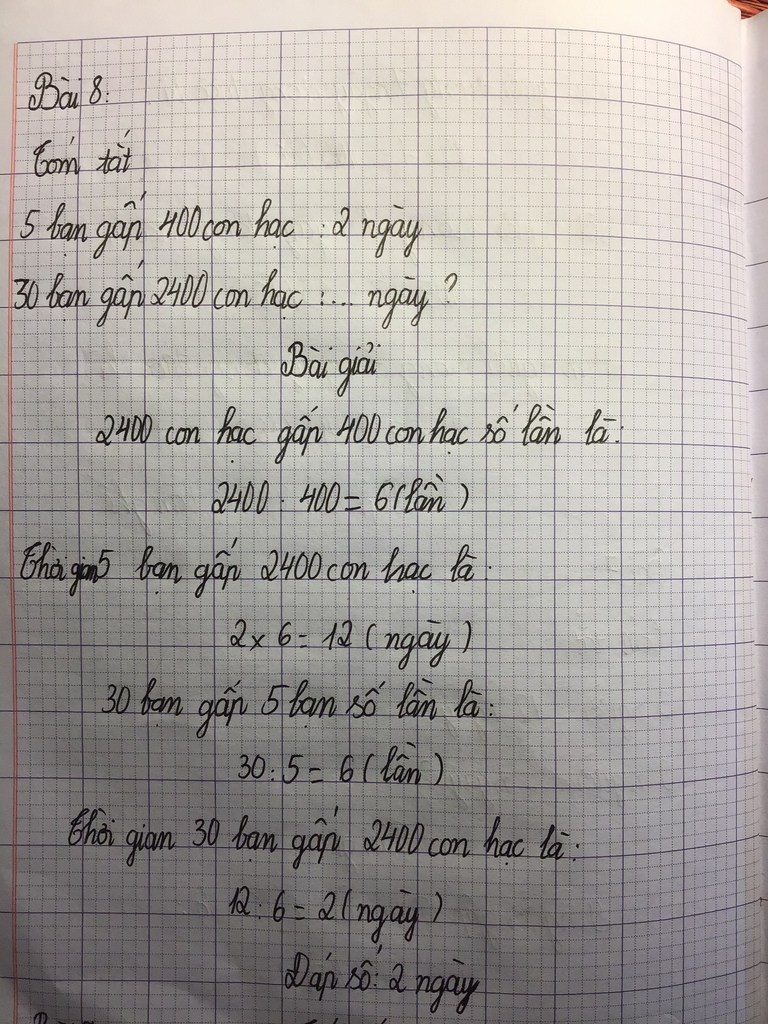 Bài 8:
Tóm tắt
5 bạn gấp 400 con hạc : 2 ngày
30 bạn gấp 2400 con hạc : ... ngày ?
Bài giải
2400 con hạc gấp 400 con hạc số lần là:
2400 : 400 = 6 (lần)
Thời gian 5 bạn gấp 2400 con hạc là :
2 x 6 = 12 (ngày)
30 bạn gấp 5 bạn số lần là:
30 : 5 = 6 (lần)
Thời gian 30 bạn gấp 2400 con hạc là:
12 : 6 = 2 (ngày)
Đáp số: 2 ngày